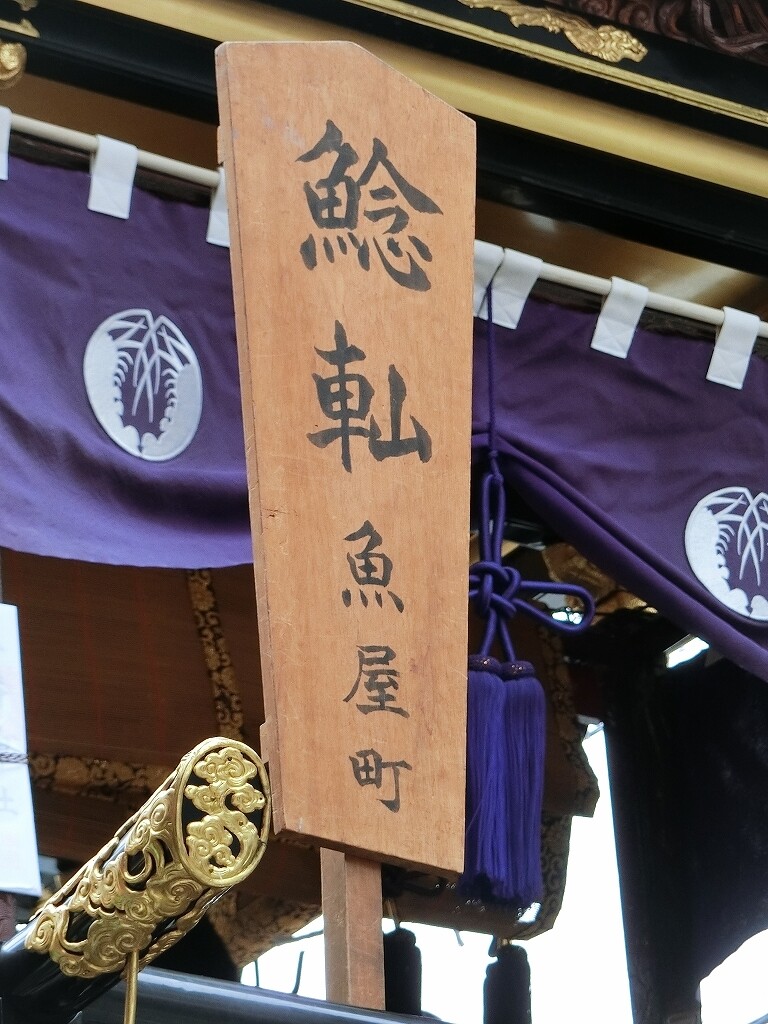 鯰𨊂魚屋町